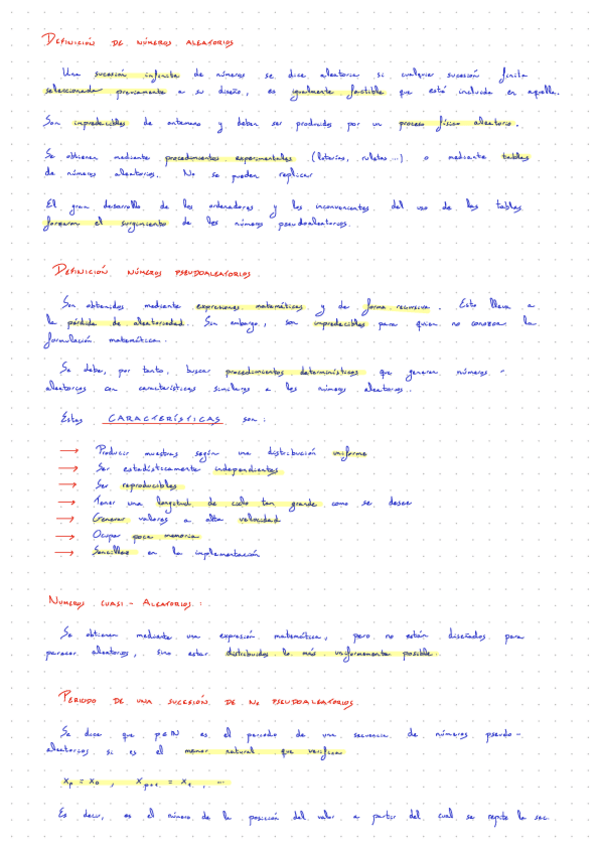 DEFINICIÓN DE NÚMEROS ALEATORIOS
Una sucesión infinita de números se dice aleatoria si cualquier sucesión finita
seleccionada previamente a su diseño, es igualmente factible que esté incluida en aquella.
Son impredecibles de antemano y deben ser producidos por un proceso físico aleatorio.
Se obtienen mediante procedimientos experimentales (loterías, ruletas...) o mediante tablas
de números aleatorios. No se pueden replicar
El gran desarrollo de los ordenadores y los inconvenientes del uso de las tablas
forzaron el surgimiento de los números pseudoaleatorios.
DEFINICIÓN NÚMEROS PSEUDOALEATORIOS
Son obtenidos mediante expresiones matemáticas y de forma recursiva. Esto lleva a
la pérdida de aleatoriedad. Sin embargo, son impredecibles para quien no conozca la
formulación matemática.
Se debe, por tanto, buscar procedimientos determinísticos que generen números -
aleatorios con características similares a los números aleatorios.
Estas CARACTERÍSTICAS son:
→ Producir muestras según una distribución uniforme
→ Ser estadísticamente independientes
→ Ser reproducibles
→ Tener una longitud de ciclo tan grande como se desee
→ Generar valores a alta velocidad
→ Ocupar poca memoria
→ Sencillos en la implementación
NUMEROS CUASI-ALEATORIOS:
Se obtienen mediante una expresión matemática, pero no están diseñados para
parecer aleatorios, sino estar distribuidos lo más uniformemente posible.
PERIODO DE UNA SUCESIÓN DE Nº PSEUDOALEATORIOS
Se dice que p∈ℕ es el periodo de una secuencia de números pseudo-
aleatorios si es el menor natural que verifica
Xp = X0 , Xp+1 = X1 , ...
Es decir, es el número de la posición del valor a partir del cual se repite la sec.